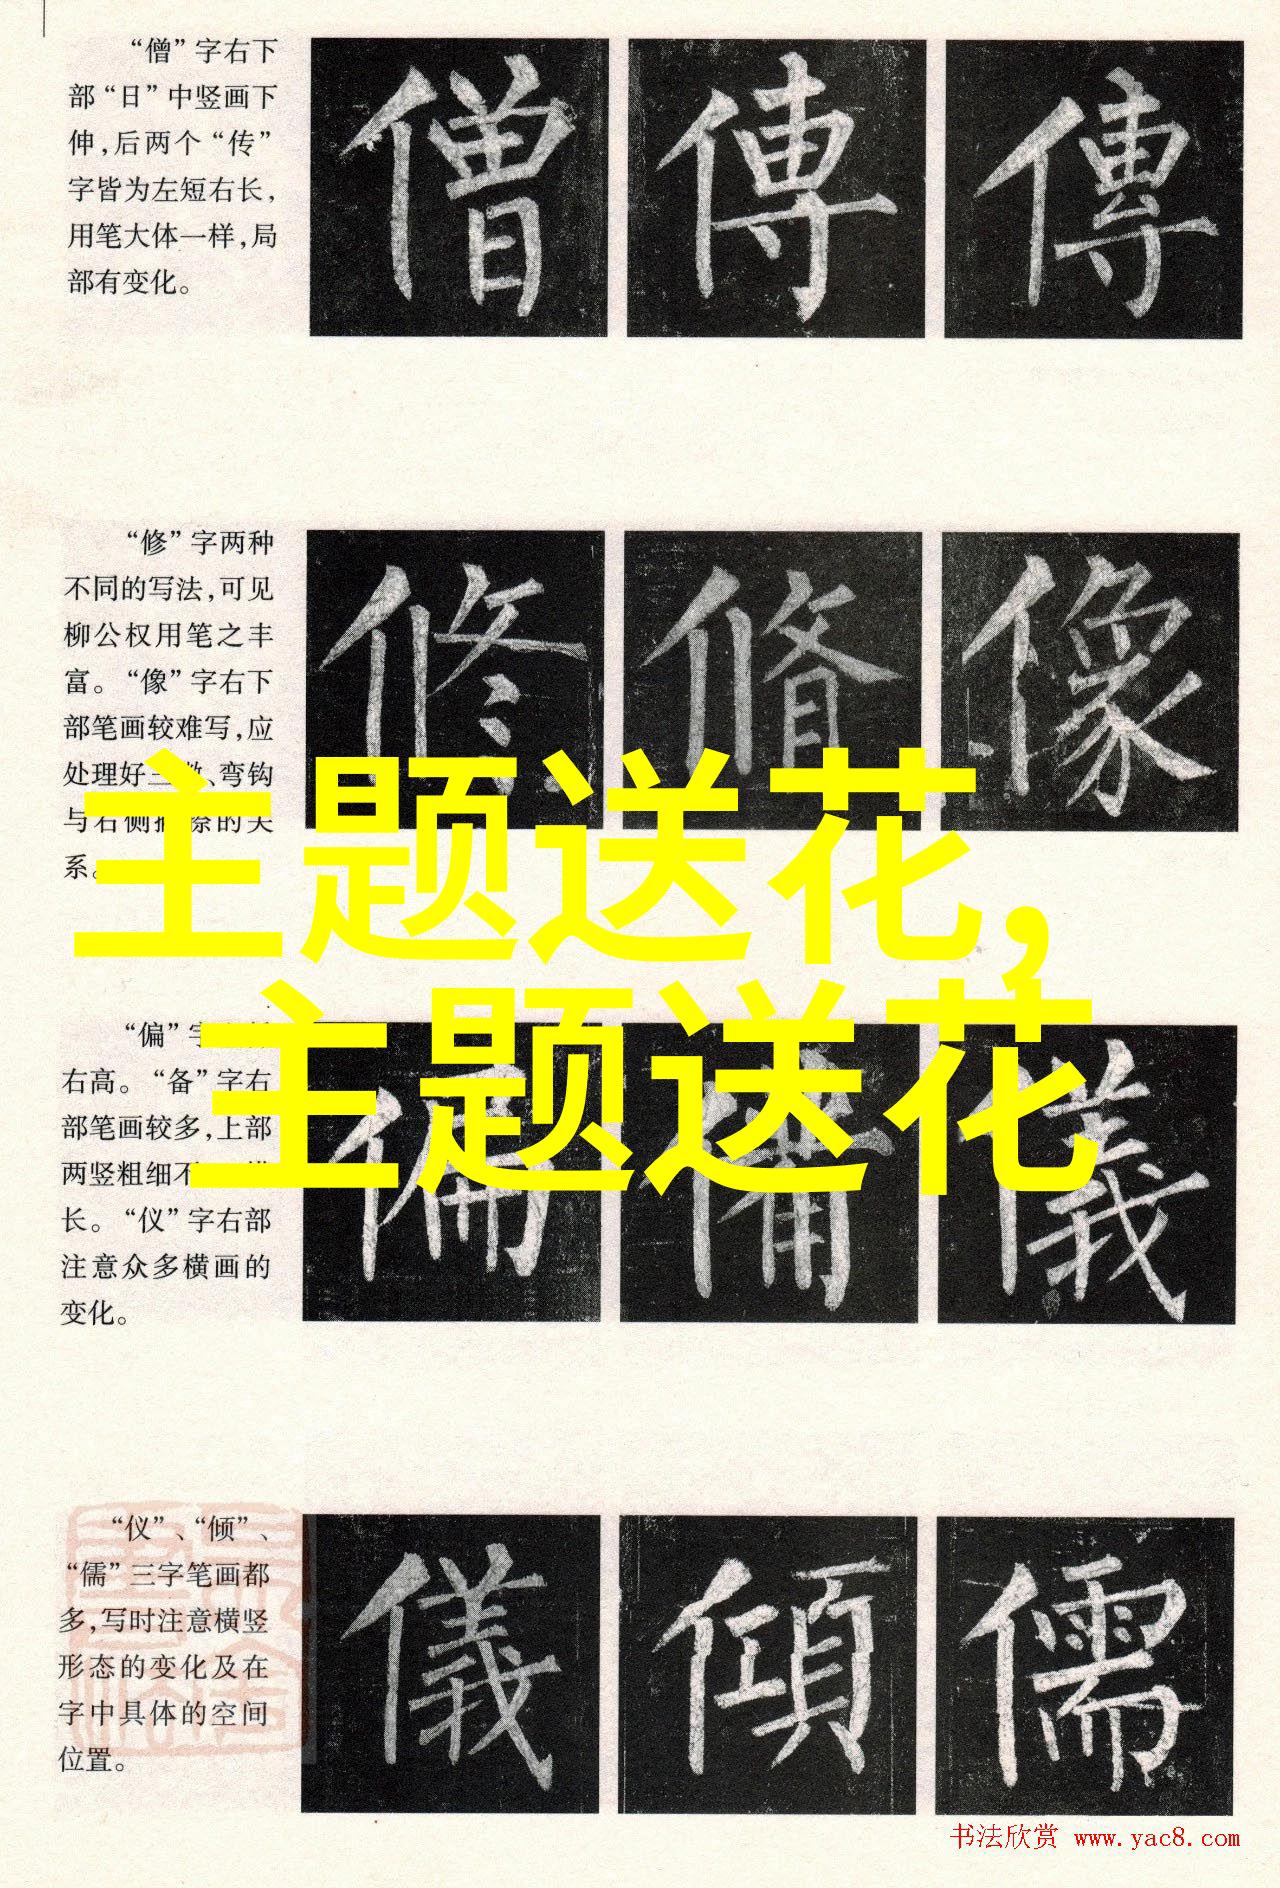 “僧”字右下
部“日”中竖画下
伸,后两个“传”
字皆为左短右长,
用笔大体一样,局
部有变化。
僧 傳 傳
“修”字两种
不同的写法,可见
柳公权用笔之丰
富。“像”字右下
部笔画较难写,应
处理好三撇、弯钩
与右侧撇捺的关
系。
修 脩 像
主题送花,
主题送花
“偏”字
右高。“备”字右
部笔画较多,上部
两竖粗细不
长。“仪”字右部
注意众多横画的
变化。
偏 備 儀
“仪”、“倾”、
“儒”三字笔画都
多,写时注意横竖
形态的变化及在
字中具体的空间
位置。
儀 傾 儒
书法欣赏 www.yac8.com